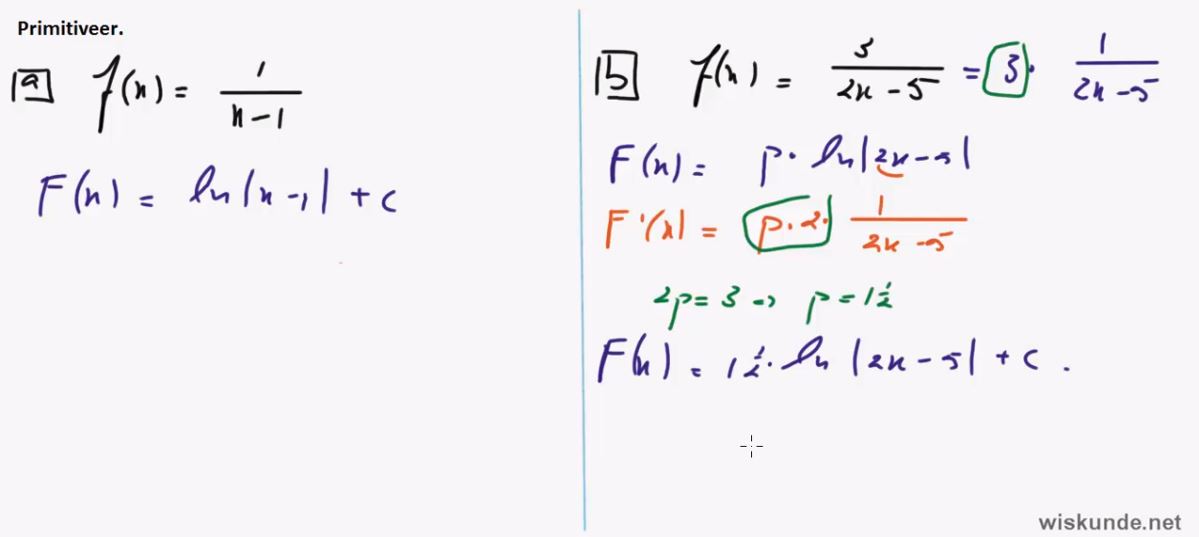 Primitiveer.
1a f(x) = 1/(x-1)
F(x) = ln|x-1| + c
1b f(x) = 3/(2x-5) = 3 · 1/(2x-5)
F(x) = p · ln|2x-5|
F'(x) = p · 2 · 1/(2x-5)
2p = 3 → p = 1½
F(x) = 1½ · ln|2x-5| + c.
wiskunde.net